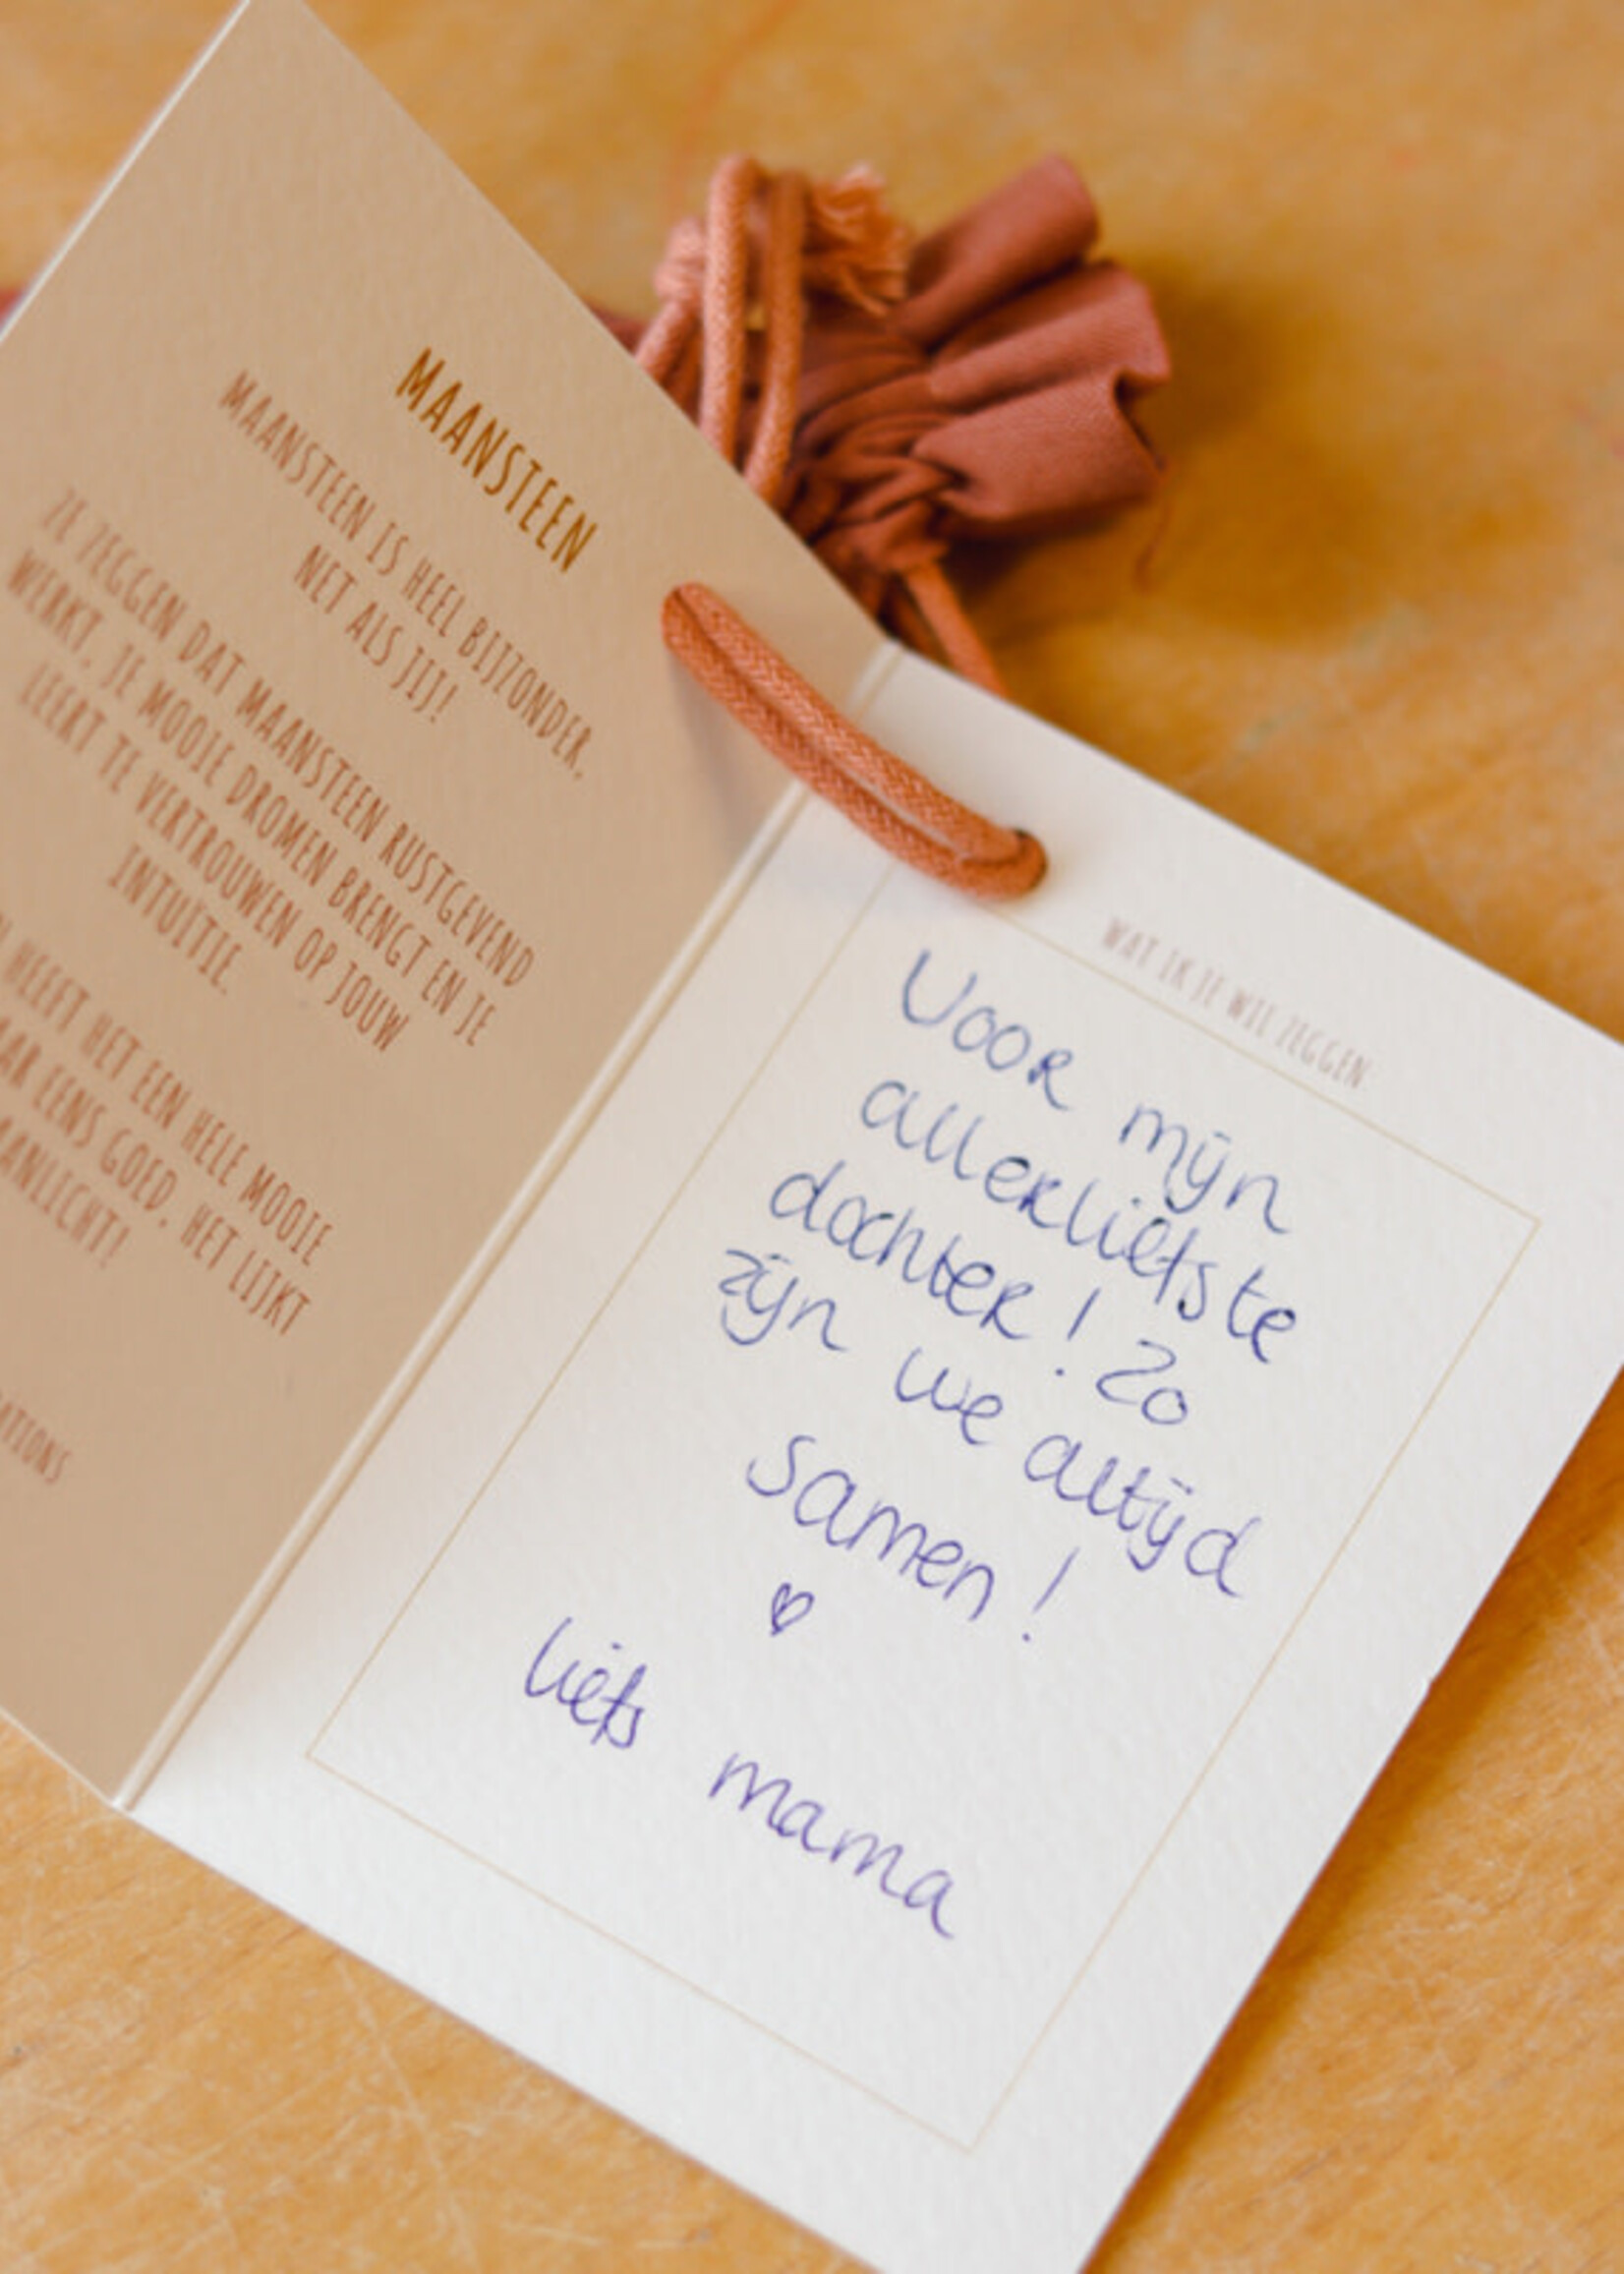 MAANSTEEN
MAANSTEEN IS HEEL BIJZONDER,
NET ALS JIJ!
ZE ZEGGEN DAT MAANSTEEN RUSTGEVEND
WERKT, JE MOOIE DROMEN BRENGT EN JE
LEERT TE VERTROUWEN OP JOUW
INTUITIE.
HEEFT HET EEN HELE MOOIE
EENS GOED, HET LIJKT
WAT IK JE WIL ZEGGEN
Voor mijn
allerliefste
dochter! Zo
zijn we altijd
samen!
♡
liefs mama